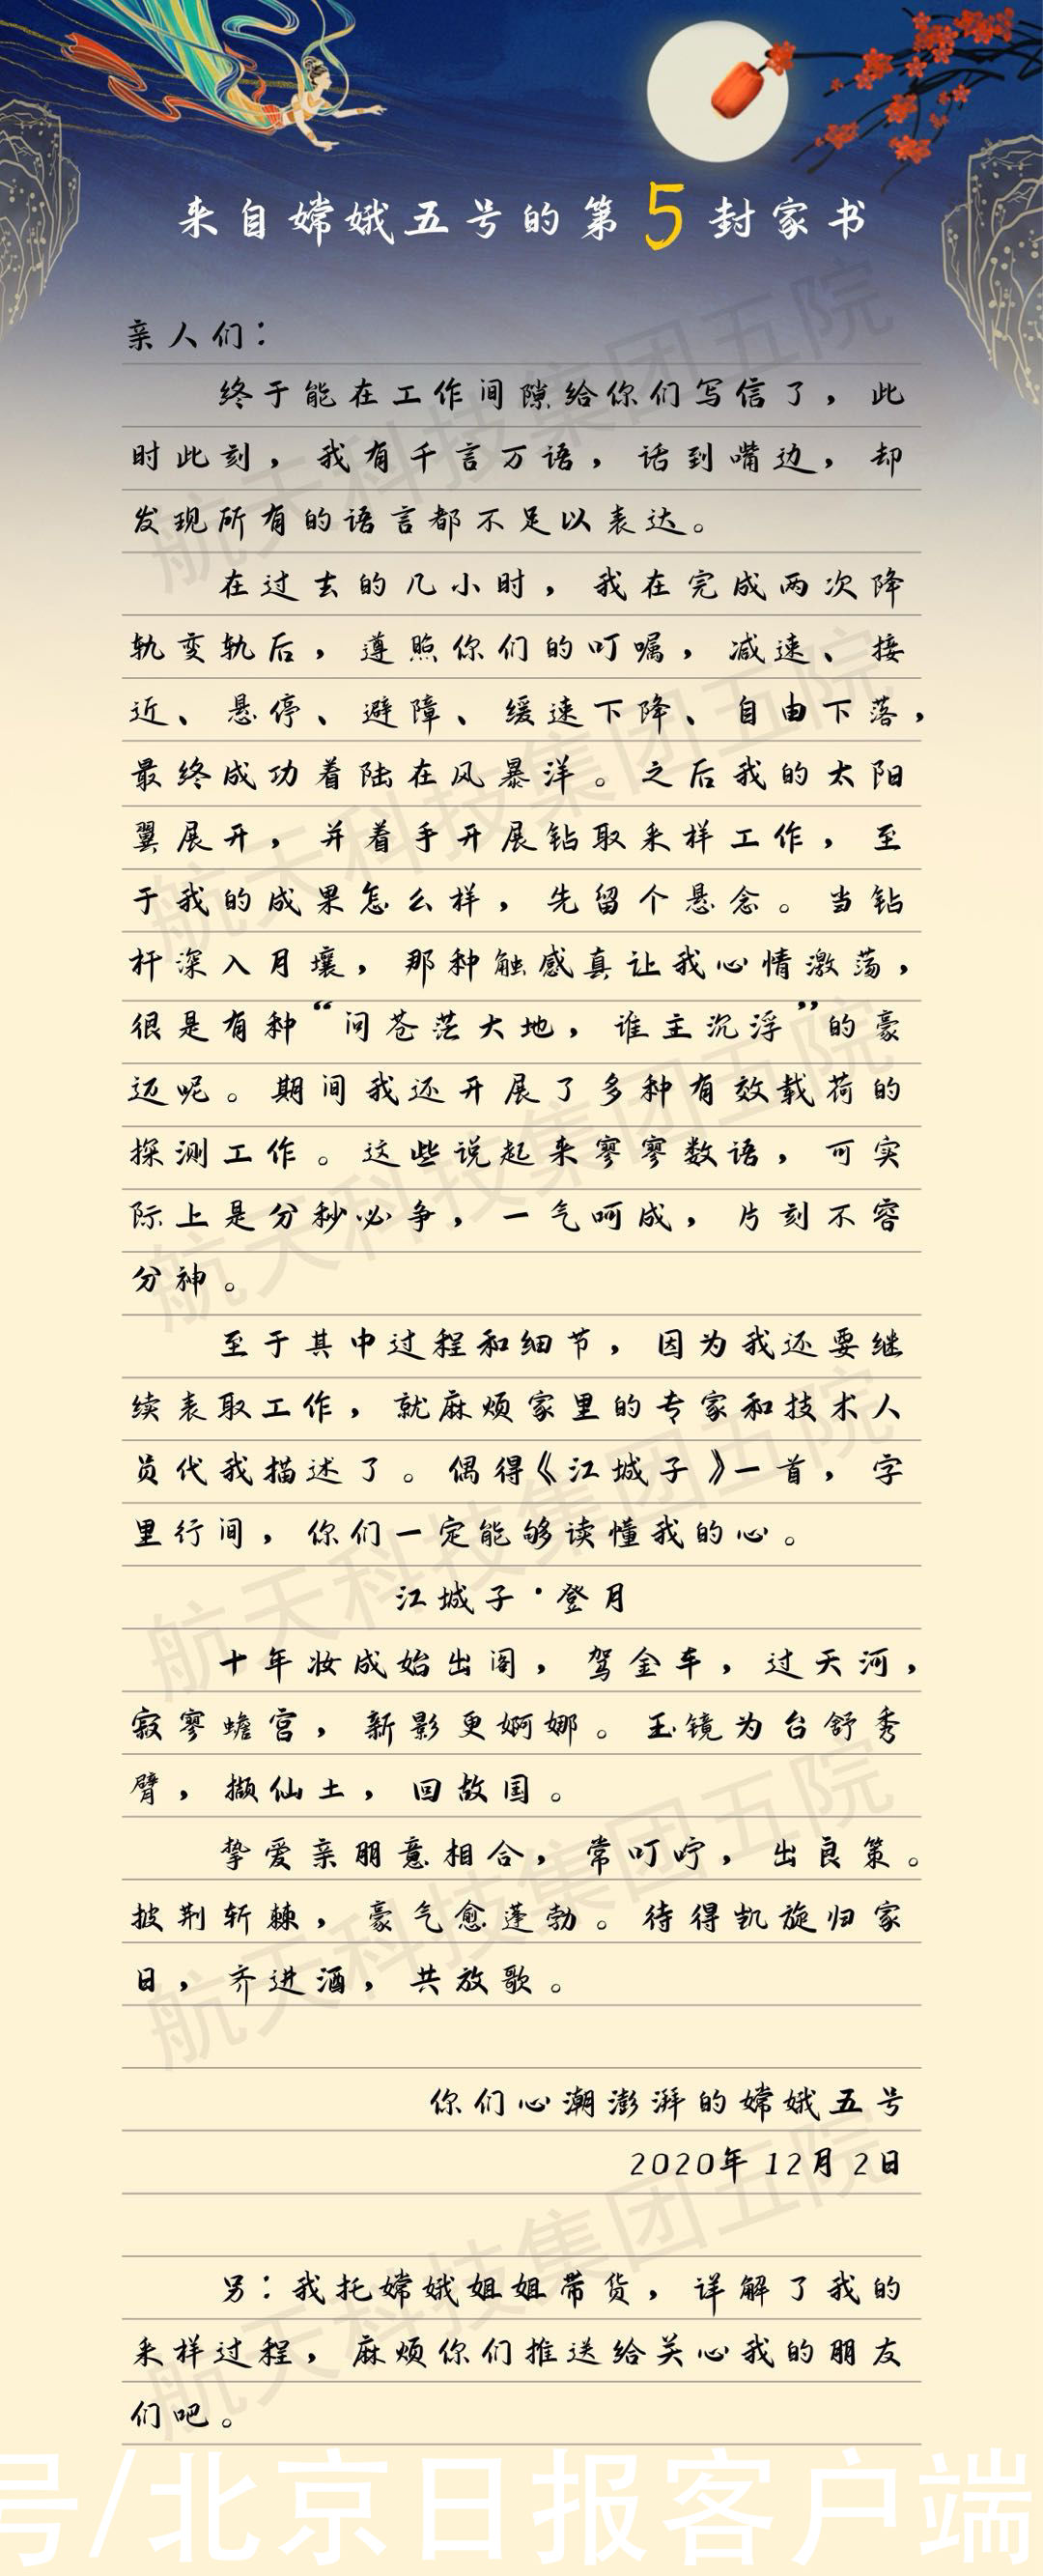 来自嫦娥五号的第5封家书
亲人们：
终于能在工作间隙给你们写信了，此
时此刻，我有千言万语，话到嘴边，却
发现所有的语言都不足以表达。
在过去的几小时，我在完成两次降
轨变轨后，遵照你们的叮嘱，减速、接
近、悬停、避障、缓速下降、自由下落，
最终成功着陆在风暴洋。之后我的太阳
翼展开，并着手开展钻取采样工作，至
于我的成果怎么样，先留个悬念。当钻
杆深入月壤，那种触感真让我心情激荡，
很是有种“问苍茫大地，谁主沉浮”的豪
迈呢。期间我还开展了多种有效载荷的
探测工作。这些说起来寥寥数语，可实
际上是分秒必争，一气呵成，片刻不容
分神。
至于其中过程和细节，因为我还要继
续表取工作，就麻烦家里的专家和技术人
员代我描述了。偶得《江城子》一首，字
里行间，你们一定能够读懂我的心。
江城子·登月
十年妆成始出阁，驾金车，过天河，
寂寥蟾宫，新影更婀娜。玉镜为台舒秀
臂，撷仙土，回故国。
挚爱亲朋意相合，常叮咛，出良策。
披荆斩棘，豪气愈蓬勃。待得凯旋归家
日，齐进酒，共放歌。
你们心潮澎湃的嫦娥五号
2020年12月2日
另：我托嫦娥姐姐带货，详解了我的
采样过程，麻烦你们推送给关心我的朋友
们吧。
号/北京日报客户端
航天科技集团五院
航天科技集团五院
航天科技集团五院
航天科技集团五院
航天科技集团五院
航天科技集团五院